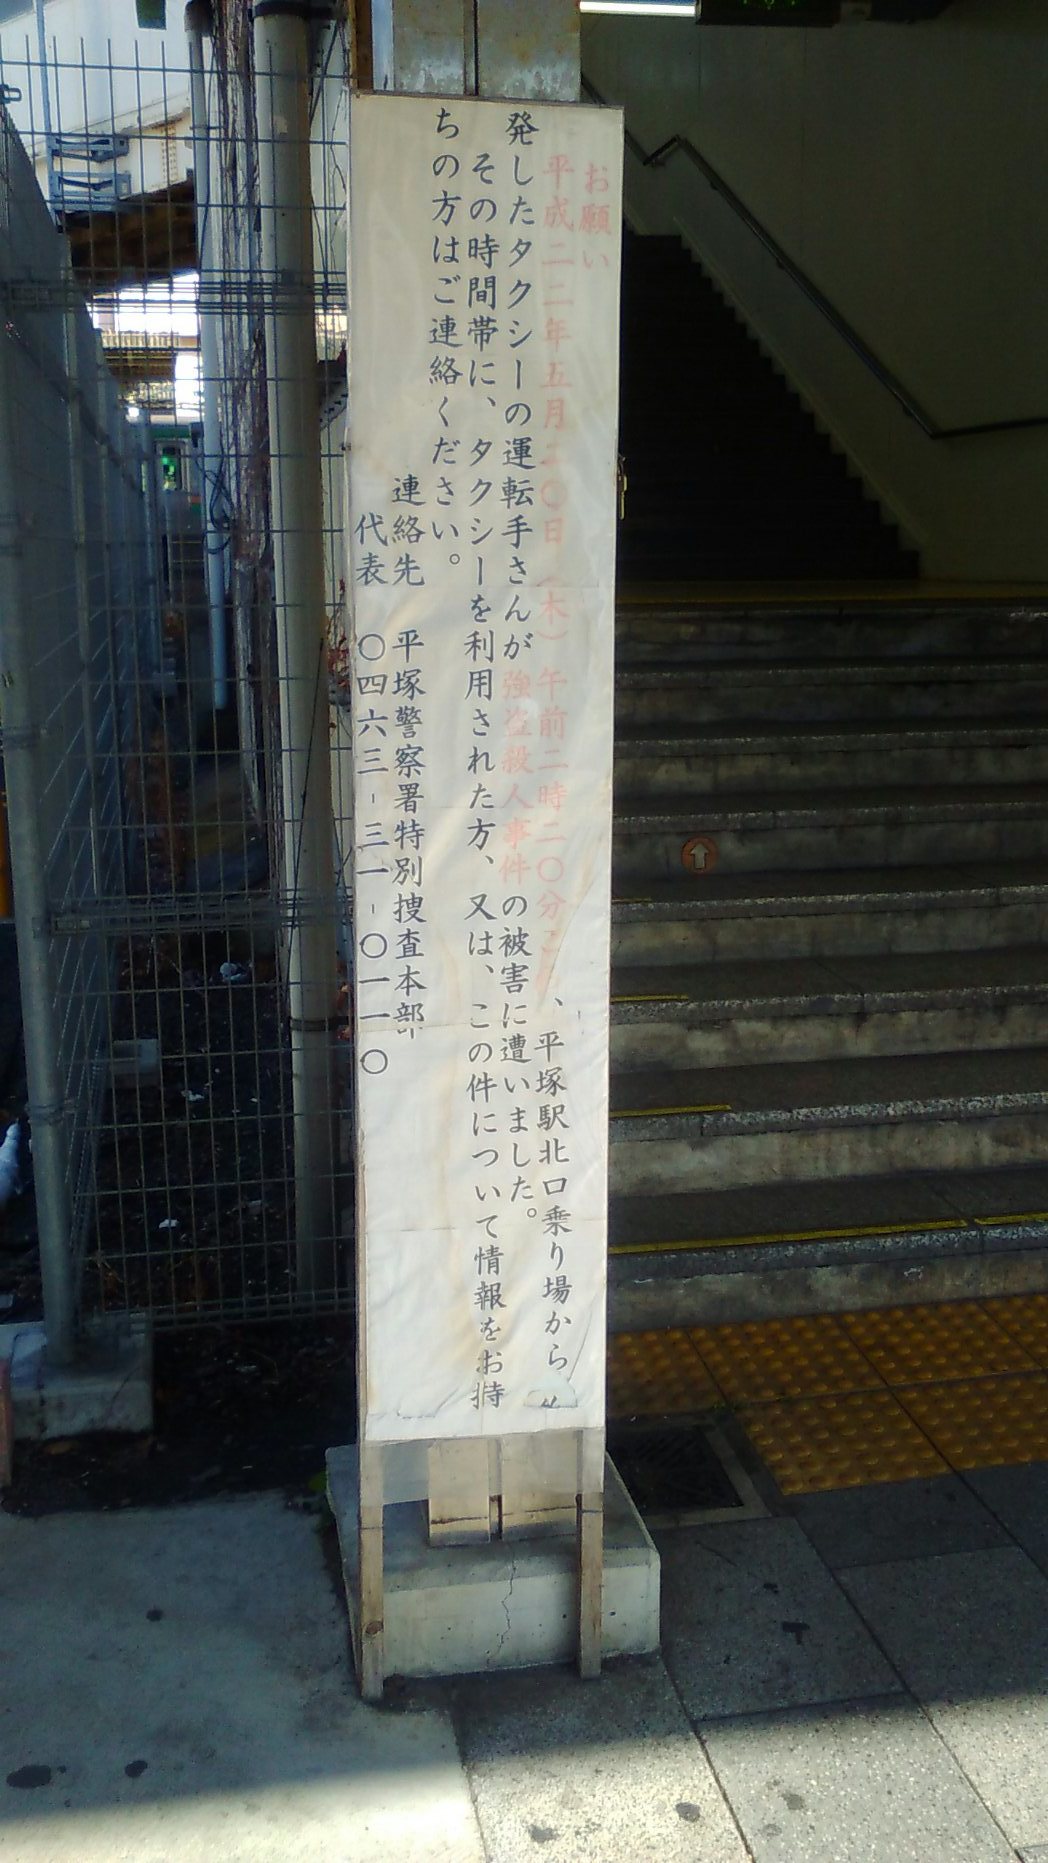 お願い
平成二二年五月二〇日（木）午前二時二〇分ころ、平塚駅北口乗り場から
発したタクシーの運転手さんが強盗殺人事件の被害に遭いました。
その時間帯に、タクシーを利用された方、又は、この件について情報をお持
ちの方はご連絡ください。
連絡先 平塚警察署特別捜査本部
代表 〇四六三-三一-〇一一〇